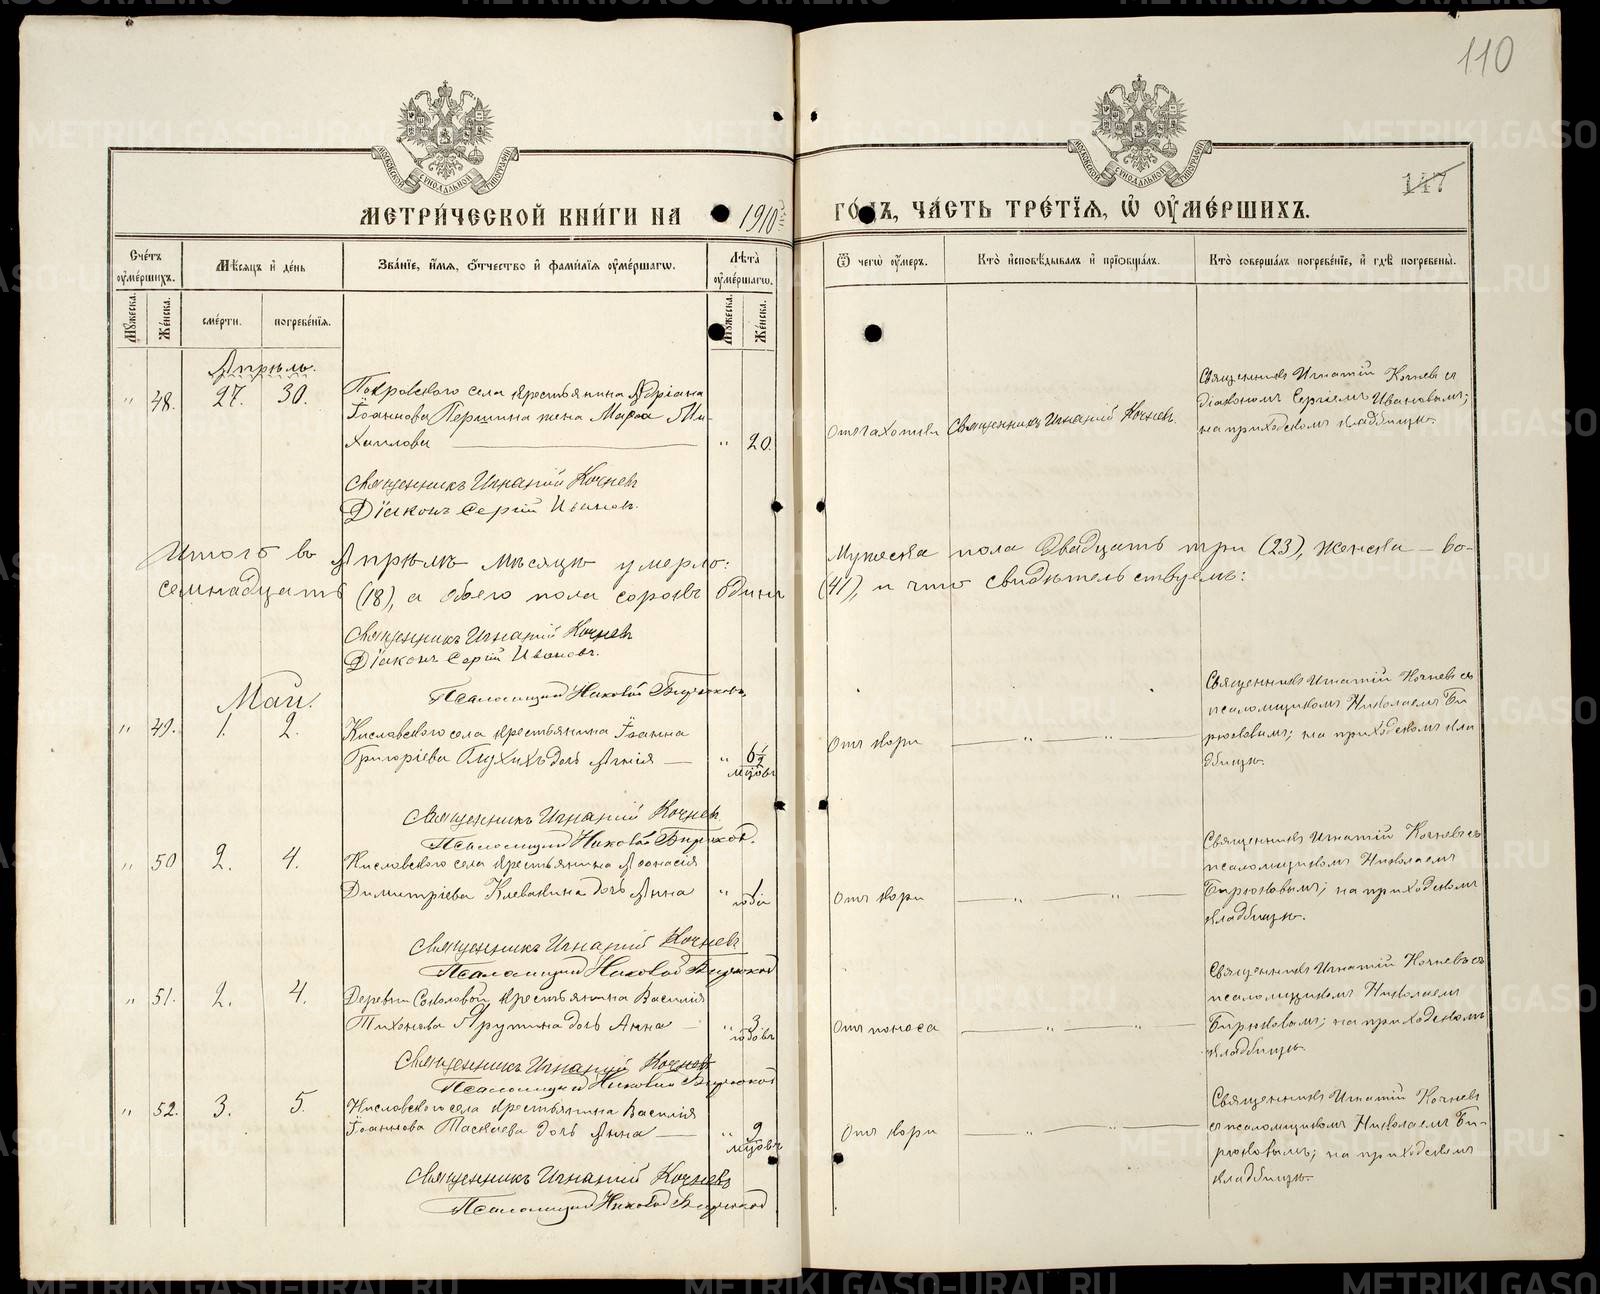 110
147
МЕТРИ́ЧЕСКОЙ КНИ́ГИ НА 1910 ГО́ДЪ, ЧА́СТЬ ТРЕ́ТЇѦ, Ѡ҆ ОУ҆МЕ́РШИХЪ.
МОСКОВСКОЙ СѴНОДАЛЬНОЙ ТИПОГРАФІИ
МОСКОВСКОЙ СѴНОДАЛЬНОЙ ТИПОГРАФІИ
Сче́тъ оу҆ме́ршихъ.
Мꙋ́жеска.
Же́нска.
Мѣ́сѧцъ и҆ де́нь
сме́рти.
погребе́нїѧ.
Зва́нїе, и҆́мѧ, ѻ҆́тчество и҆ фами́лїѧ оу҆ме́ршагѡ.
Лѣ́та оу҆ме́ршагѡ.
Мꙋ́жеска.
Же́нска.
Ѿ чегѡ̀ оу҆́меръ.
Кто̀ и҆сповѣ́дывалъ и҆ прїѡбща́лъ.
Кто̀ соверша́лъ погребе́нїе, и҆ гдѣ̀ погребены̀.
Апрѣль.
" 48. 27. 30.
Покровскаго села крестьянина Адріана
Іоаннова Першина жена Марѳа Ми-
хаилова " 20.
Отъ чахотки
Священникъ Игнатій Кочневъ.
Священникъ Игнатій Кочневъ съ
діакономъ Сергіемъ Ивановымъ;
на приходскомъ кладбищѣ.
Священникъ Игнатій Кочневъ
Діаконъ Сергій Ивановъ.
Итого въ Апрѣлѣ мѣсяцѣ умерло: Мужеска пола двадцать три (23), женска – во-
семнадцать (18), а обоего пола сорокъ одинъ (41), в чемъ свидѣтельствуемъ:
Священникъ Игнатій Кочневъ
Діаконъ Сергій Ивановъ.
Псаломщикъ Николай Бирюковъ
Май.
" 49. 1. 2.
Кисловскаго села крестьянина Іоанна
Григоріева Глухихъ дочь Агнія " 6½ мѣсяцовъ
Отъ кори " "
Священникъ Игнатій Кочневъ съ
псаломщикомъ Николаемъ Би-
рюковымъ; на приходскомъ кла-
дбищѣ.
Священникъ Игнатій Кочневъ
Псаломщикъ Николай Бирюковъ.
" 50 2. 4.
Кисловскаго села крестьянина Аѳонасія
Димитріева Клевакина дочь Анна " 1. года
Отъ кори " "
Священникъ Игнатій Кочневъ съ
псаломщикомъ Николаемъ
Бирюковымъ; на приходскомъ
кладбищѣ.
Священникъ Игнатій Кочневъ
Псаломщикъ Николай Бирюковъ
" 51. 2. 4.
Деревни Соколовой крестьянина Василія
Тихонова дочь Анна " 3 годовъ
Отъ поноса " "
Священникъ Игнатій Кочневъ съ
псаломщикомъ Николаемъ
Бирюковымъ; на приходскомъ
кладбищѣ.
Священникъ Игнатій Кочневъ
Псаломщикъ Николай Бирюковъ
" 52. 3. 5.
Кисловскаго села крестьянина Василія
Іоаннова Таскаева дочь Анна " 9 мѣсяцовъ
Отъ кори " "
Священникъ Игнатій Кочневъ
съ псаломщикомъ Николаемъ Би-
рюковымъ; на приходскомъ
кладбищѣ.
Священникъ Игнатій Кочневъ
Псаломщикъ Николай Бирюковъ
METRIKI.GASO-URAL.RU